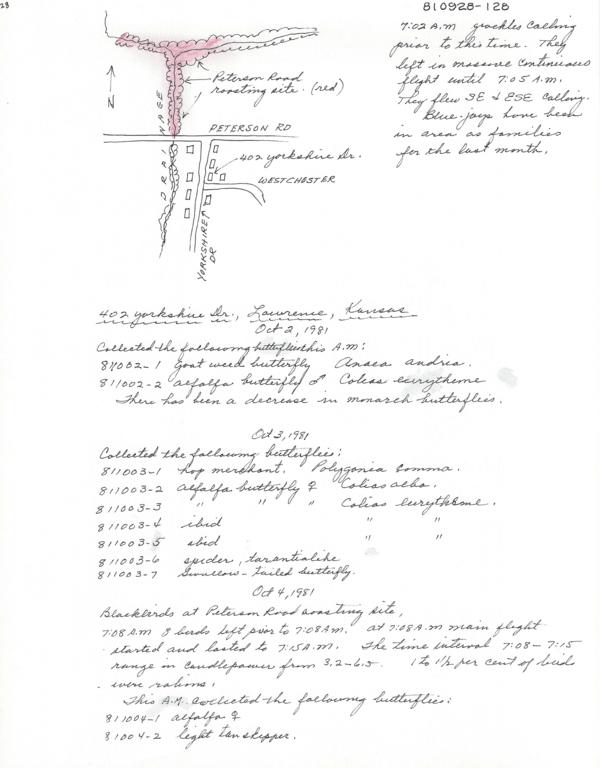 28
810928-128
7:02 A.M grackles calling
prior to this time. They
left in massive continuous
flight until 7:05 A.M.
They flew SE & ESE calling.
Blue jays have been
in area as families
for the last month.
Peterson Road
roosting site. (red)
N
DRAINAGE
PETERSON RD
402 Yorkshire Dr.
WESTCHESTER
YORKSHIRE DR
402 Yorkshire Dr., Lawrence, Kansas
Oct 2, 1981
Collected the following butterflies this A.M:
811002-1 Goat weed butterfly Anaea andria.
811002-2 alfalfa butterfly ♂ Colias eurytheme
There has been a decrease in monarch butterflies.
Oct 3, 1981
Collected the following butterflies:
811003-1 hop merchant. Polygonia comma.
811003-2 alfalfa butterfly ♀ Colias alba.
811003-3 " " " Colias eurytheme.
811003-4 ibid " "
811003-5 ibid " "
811003-6 spider, tarantialike
811003-7 Swallow-tailed butterfly.
Oct 4, 1981
Blackbirds at Peterson Road roosting site,
7:08 A.M 8 birds left prior to 7:08 A.M. at 7:08 A.M main flight
started and lasted to 7:15 A.M. The time interval 7:08-7:15
range in candlepower from 3.2-6.5. 1 to 1½ per cent of birds
were robins.
This A.M. collected the following butterflies:
811004-1 alfalfa ♀
81004-2 light tan skipper.